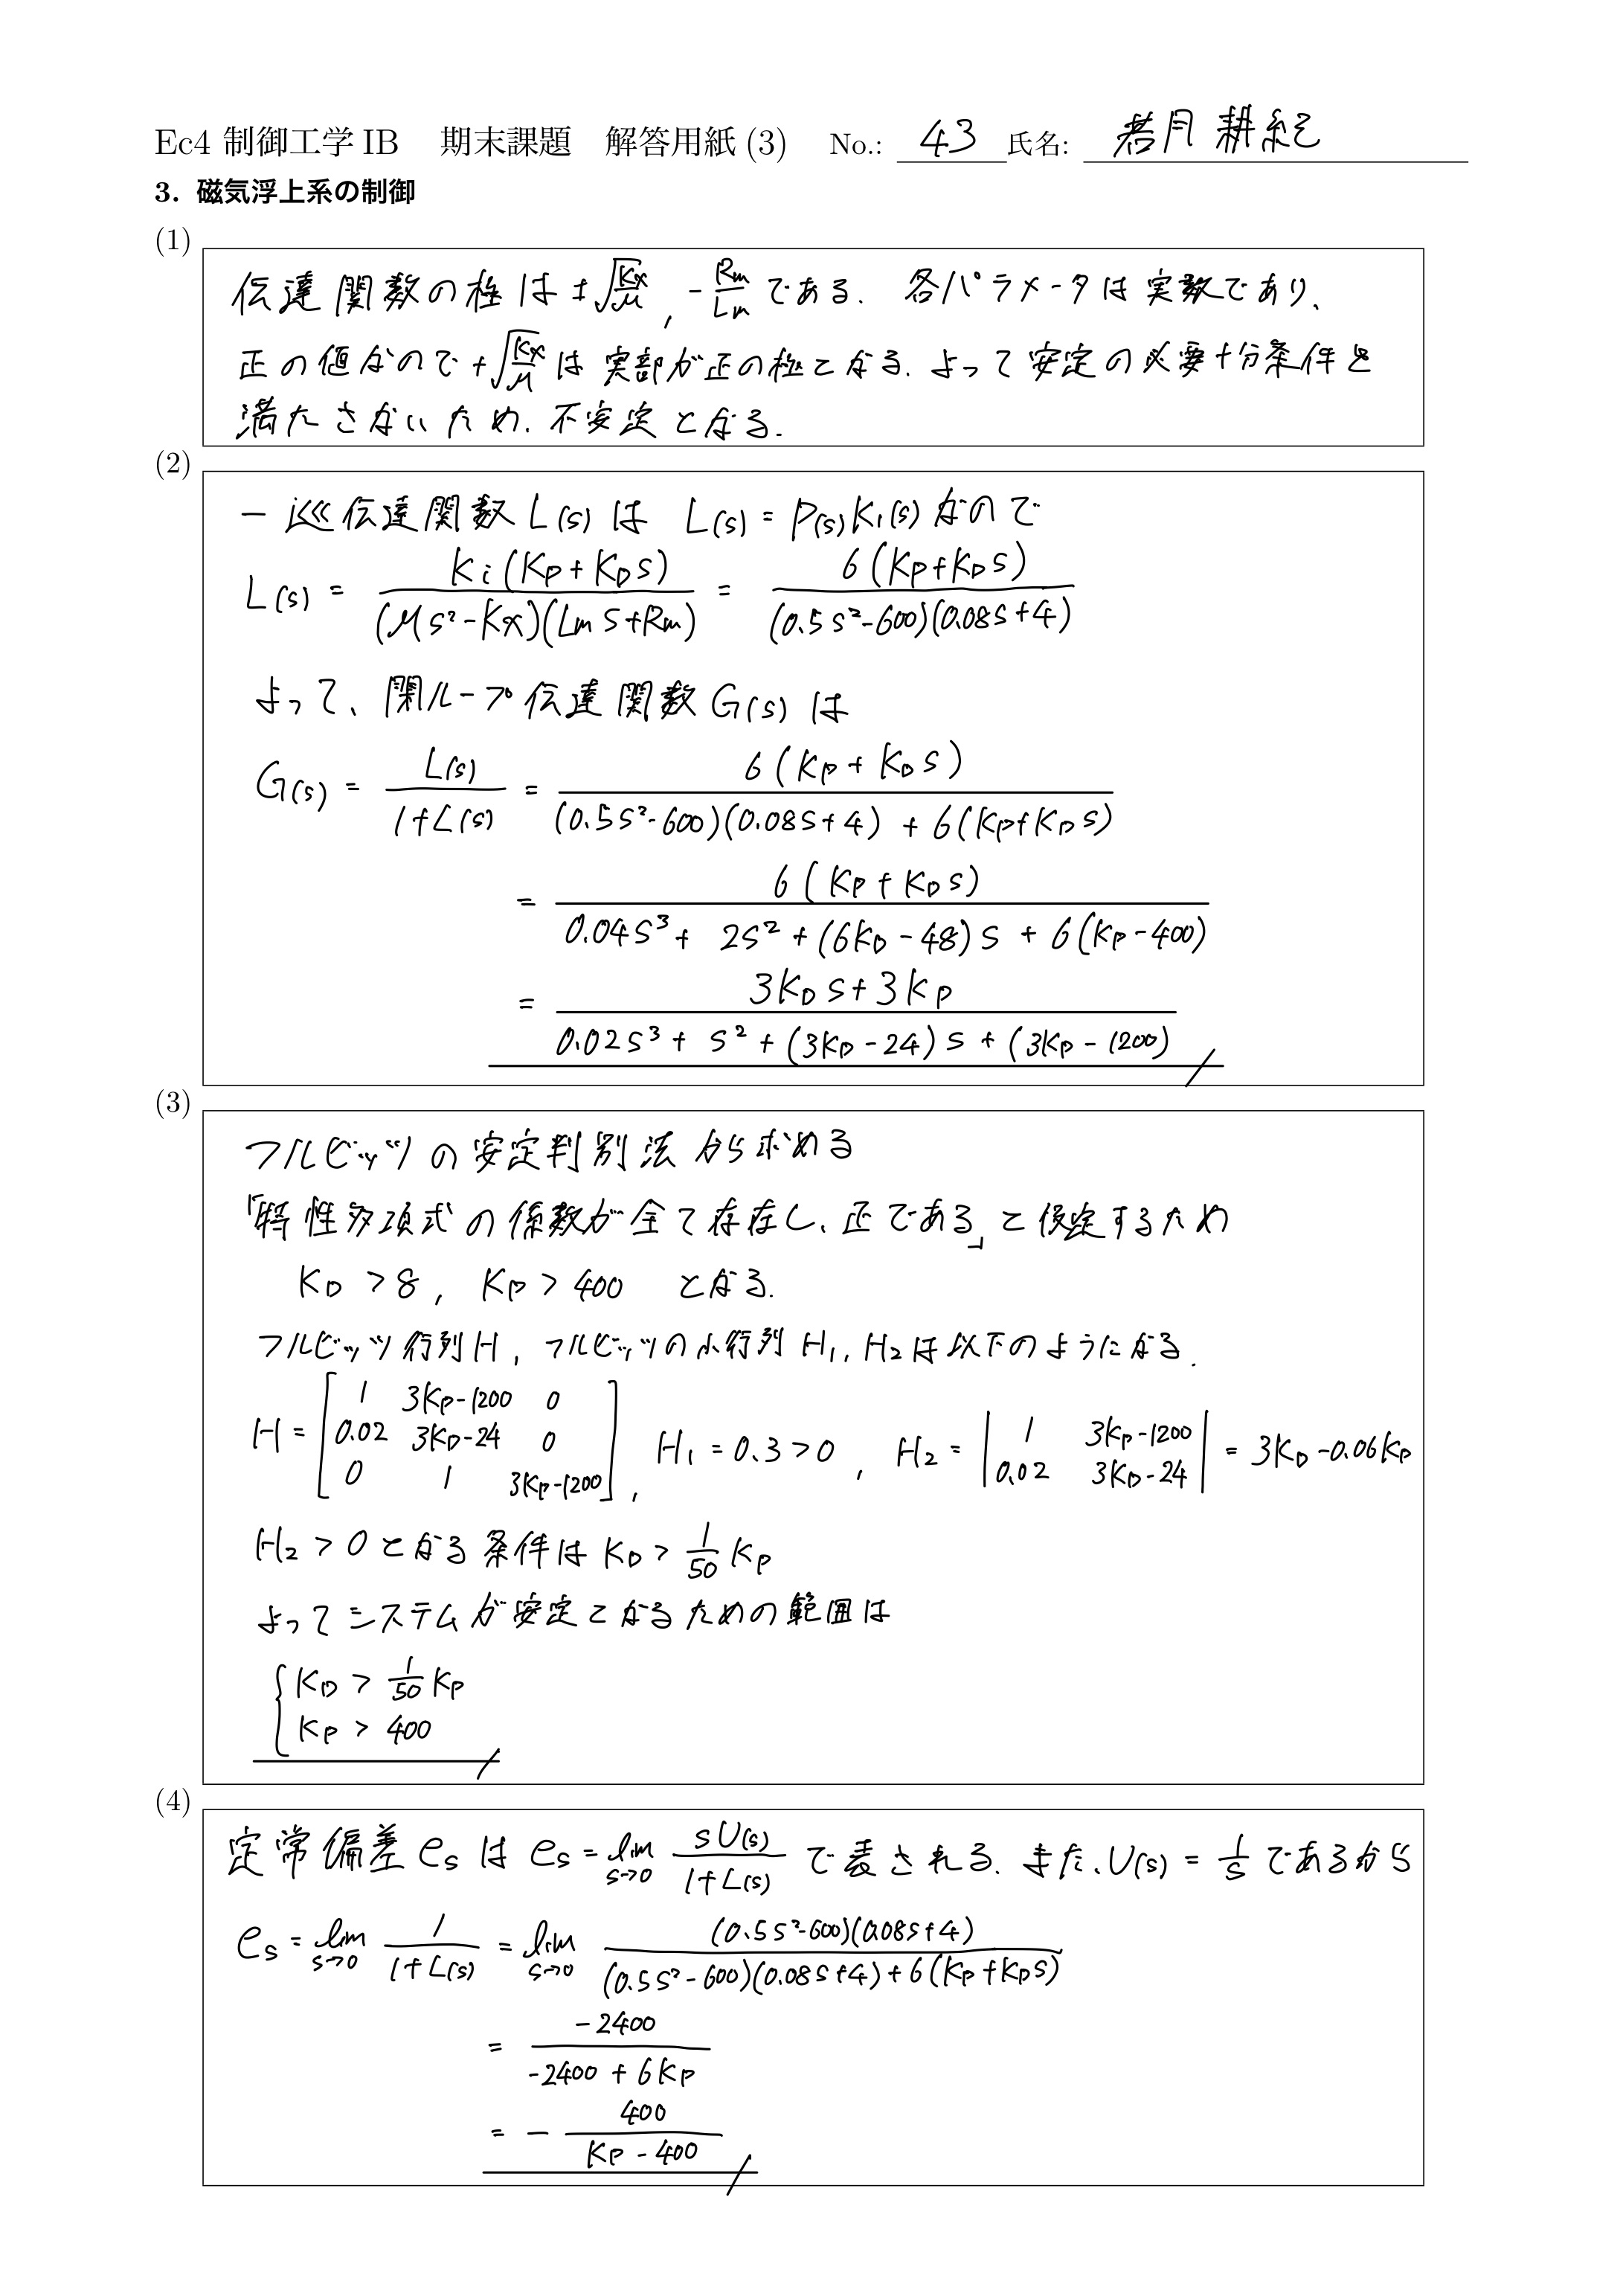 Ec4 制御工学 IB 期末課題 解答用紙 (3) No.: 43 氏名: 若月 耕紀
3. 磁気浮上系の制御
(1)
伝達関数の極は ±√(Kx/M) , -Rm/Lm である. 各パラメータは実数であり、
正の値なので +√(Kx/M) は 実部が正の極となる. よって安定の必要十分条件を
満たさないため、不安定となる.
(2)
一巡伝達関数 L(s) は L(s) = P(s)K1(s) なので
L(s) = Ki(KP + KDs) / (Ms² - Kx)(Lm s + Rm) = 6(KP + KDs) / (0.5s² - 600)(0.08s + 4)
よって、閉ループ伝達関数 G(s) は
G(s) = L(s) / 1 + L(s) = 6(KP + KDs) / (0.5s² - 600)(0.08s + 4) + 6(KP + KDs)
= 6(KP + KDs) / 0.04s³ + 2s² + (6KD - 48)s + 6(KP - 400)
= 3KDs + 3KP / 0.02s³ + s² + (3KD - 24)s + (3KP - 1200)
(3)
フルビッツの安定判別法から求める
「特性多項式の係数が全て存在し、正である」と仮定するため
KD > 8 , KP > 400 となる.
フルビッツ行列 H , フルビッツの小行列 H1, H2 は以下のようになる.
H = [ 1 3KP-1200 0
0.02 3KD-24 0
0 1 3KP-1200 ] , H1 = 0.3 > 0 , H2 = | 1 3KP-1200
0.02 3KD-24 | = 3KD - 0.06KP
H2 > 0 となる条件は KD > 1/50 KP
よってシステムが安定となるための範囲は
{ KD > 1/50 KP
KP > 400
(4)
定常偏差 es は es = lim s→0 sU(s) / 1 + L(s) で表される. また、U(s) = 1/s であるから
es = lim s→0 1 / 1 + L(s) = lim s→0 (0.5s² - 600)(0.08s + 4) / (0.5s² - 600)(0.08s + 4) + 6(KP + KDs)
= -2400 / -2400 + 6KP
= - 400 / KP - 400